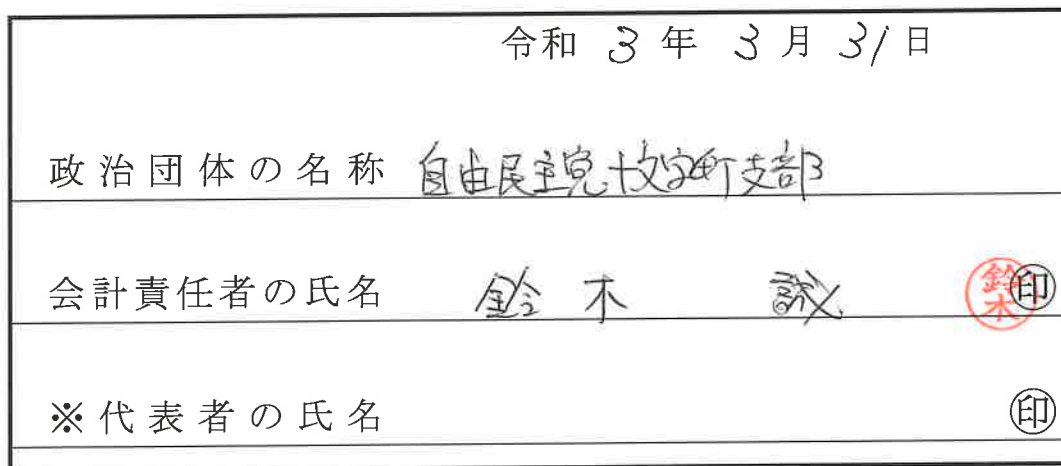 令和 3 年 3 月 31 日
政治団体の名称 自由民主党十文字町支部
会計責任者の氏名 鈴木 誠 鈴木 印
※代表者の氏名 印